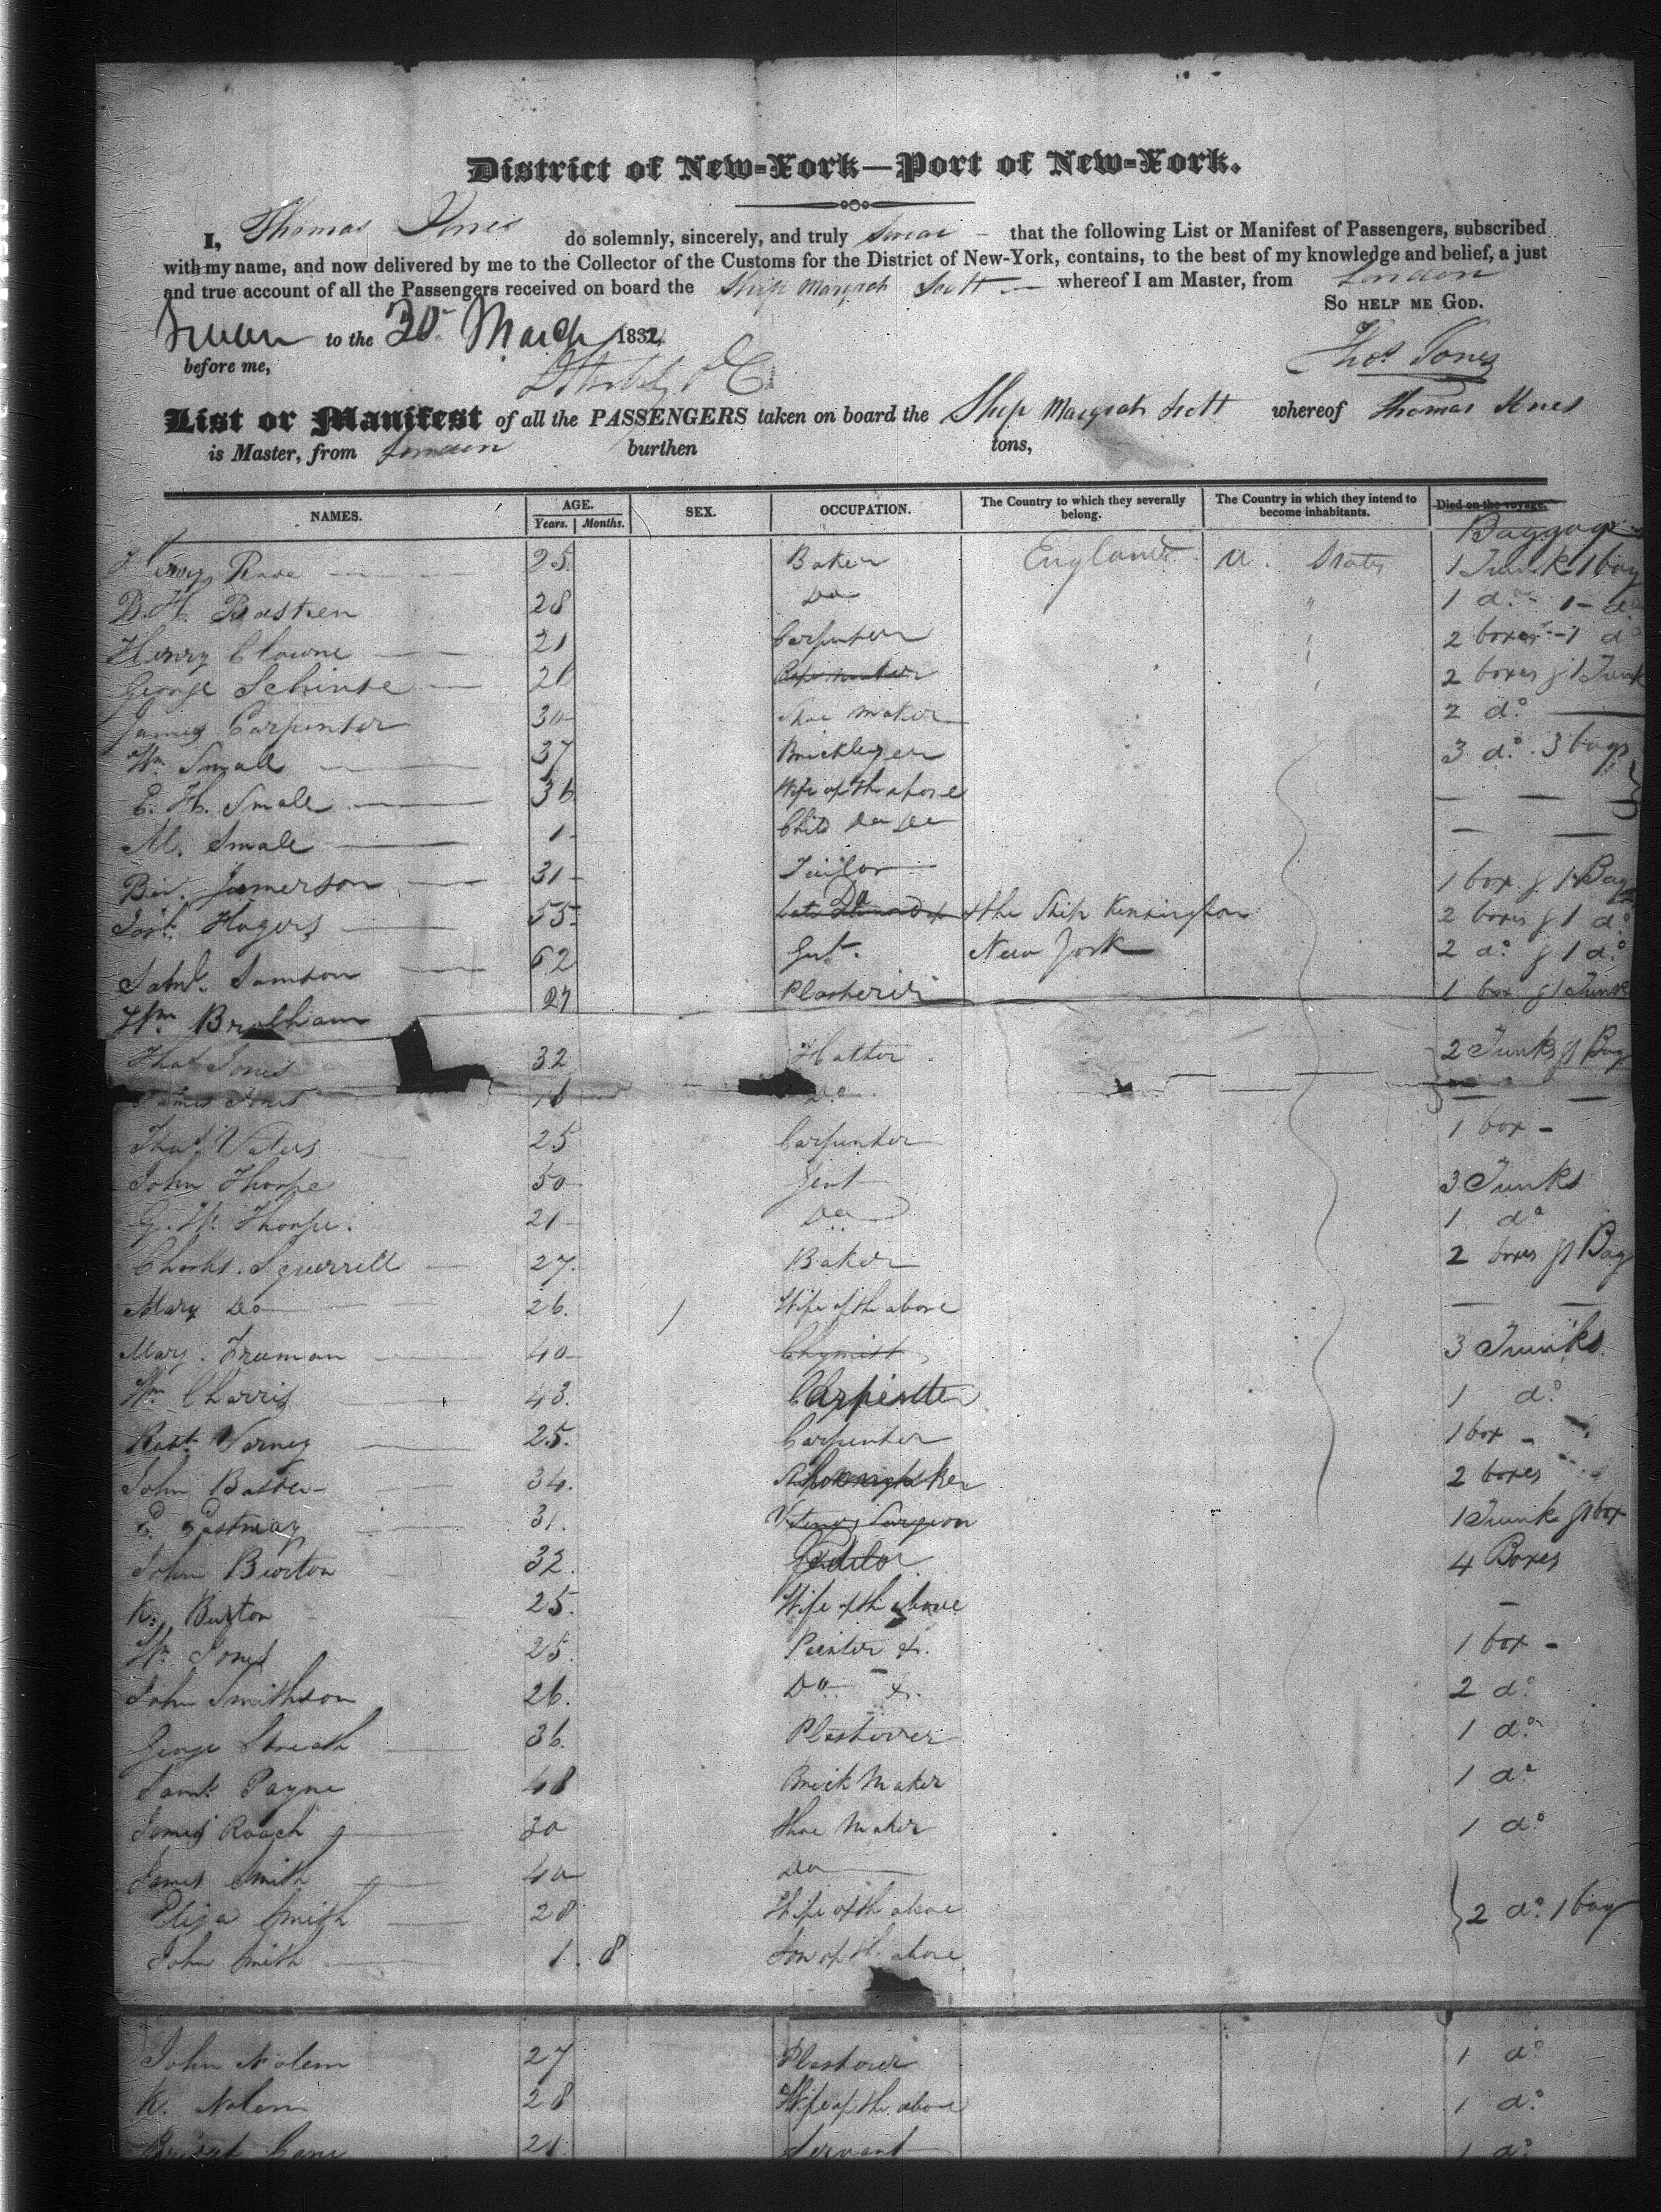 District of New-York—Port of New-York.
I, Thomas Jones do solemnly, sincerely, and truly Swear – that the following List or Manifest of Passengers, subscribed
with my name, and now delivered by me to the Collector of the Customs for the District of New-York, contains, to the best of my knowledge and belief, a just
and true account of all the Passengers received on board the Ship Margrah Scott — whereof I am Master, from London
So help me God.
Sworn to the 30 March 1832
before me,
Thos Jones
List or Manifest of all the PASSENGERS taken on board the Ship Margrah Scott whereof Thomas Jones
is Master, from London burthen tons,
NAMES. AGE. Years. Months. SEX. OCCUPATION. The Country to which they severally belong. The Country in which they intend to become inhabitants. Died on the voyage.
Baggage
Henry 25 Baker England U. States 1 Trunk 1 bag
D. H. Bastien 28 Do " 1 do 1 – do
Henry Clowne 21 Carpenter " 2 boxes – 1 do
George 2 boxes & 1 Trunk
James Carpenter 30 Shoe Maker 2 do
Wm Small 37 Bricklayer 3 do 3 bags
E. H. Small 36 Wife of the above — — —
M. Small 1 Child Do Do — —
Ben. Jamerson 31 Tailor 1 box & 1 Bag
Hagers 55 the Ship Kensington 2 boxes & 1 do
Saml. Samson 62 Gent. New York 2 do & 1 do
Wm 27 Plasterer 1 box & 1 Trunk
Thos Jones 32 Hatter 2 Trunks & 1 Bag
James Jones Do — —
Thos Vaters 25 Carpenter 1 box –
John Thorpe 50 Gent 3 Trunks
G. W. Thorpe. 21 Do 1 do
Charls. Squerrell 27 Baker 2 boxes & 1 Bag
Mary Do 26. Wife of the above — —
Mary. Freeman 40 Chymist 3 Trunks
Wm Charris 43. Carpenter 1 do
Robt. Varney 25. Carpenter 1 box –
John 34. 2 boxes
E. Eastway 31. Surgeon 1 Trunk & 1 box
John Burton 32. 4 Boxes
K. Burton 25. Wife of the above –
Wm Jones 25. Painter &. 1 box –
John Smithson 26. Do &. 2 do
George 36. Plasterer 1 do
Saml. Payne 48 Brick Maker 1 do
James Roach 30 Shoe Maker 1 do
James Smith 40 Do
Eliza Smith 28 Wife of the above 2 do 1 bag
John Smith 1. 8 Son of the above
John Nolem 27 Plasterer 1 do
K. Nolem 28 Wife of the above 1 do
Bridget Cane 21 Servant 1 do